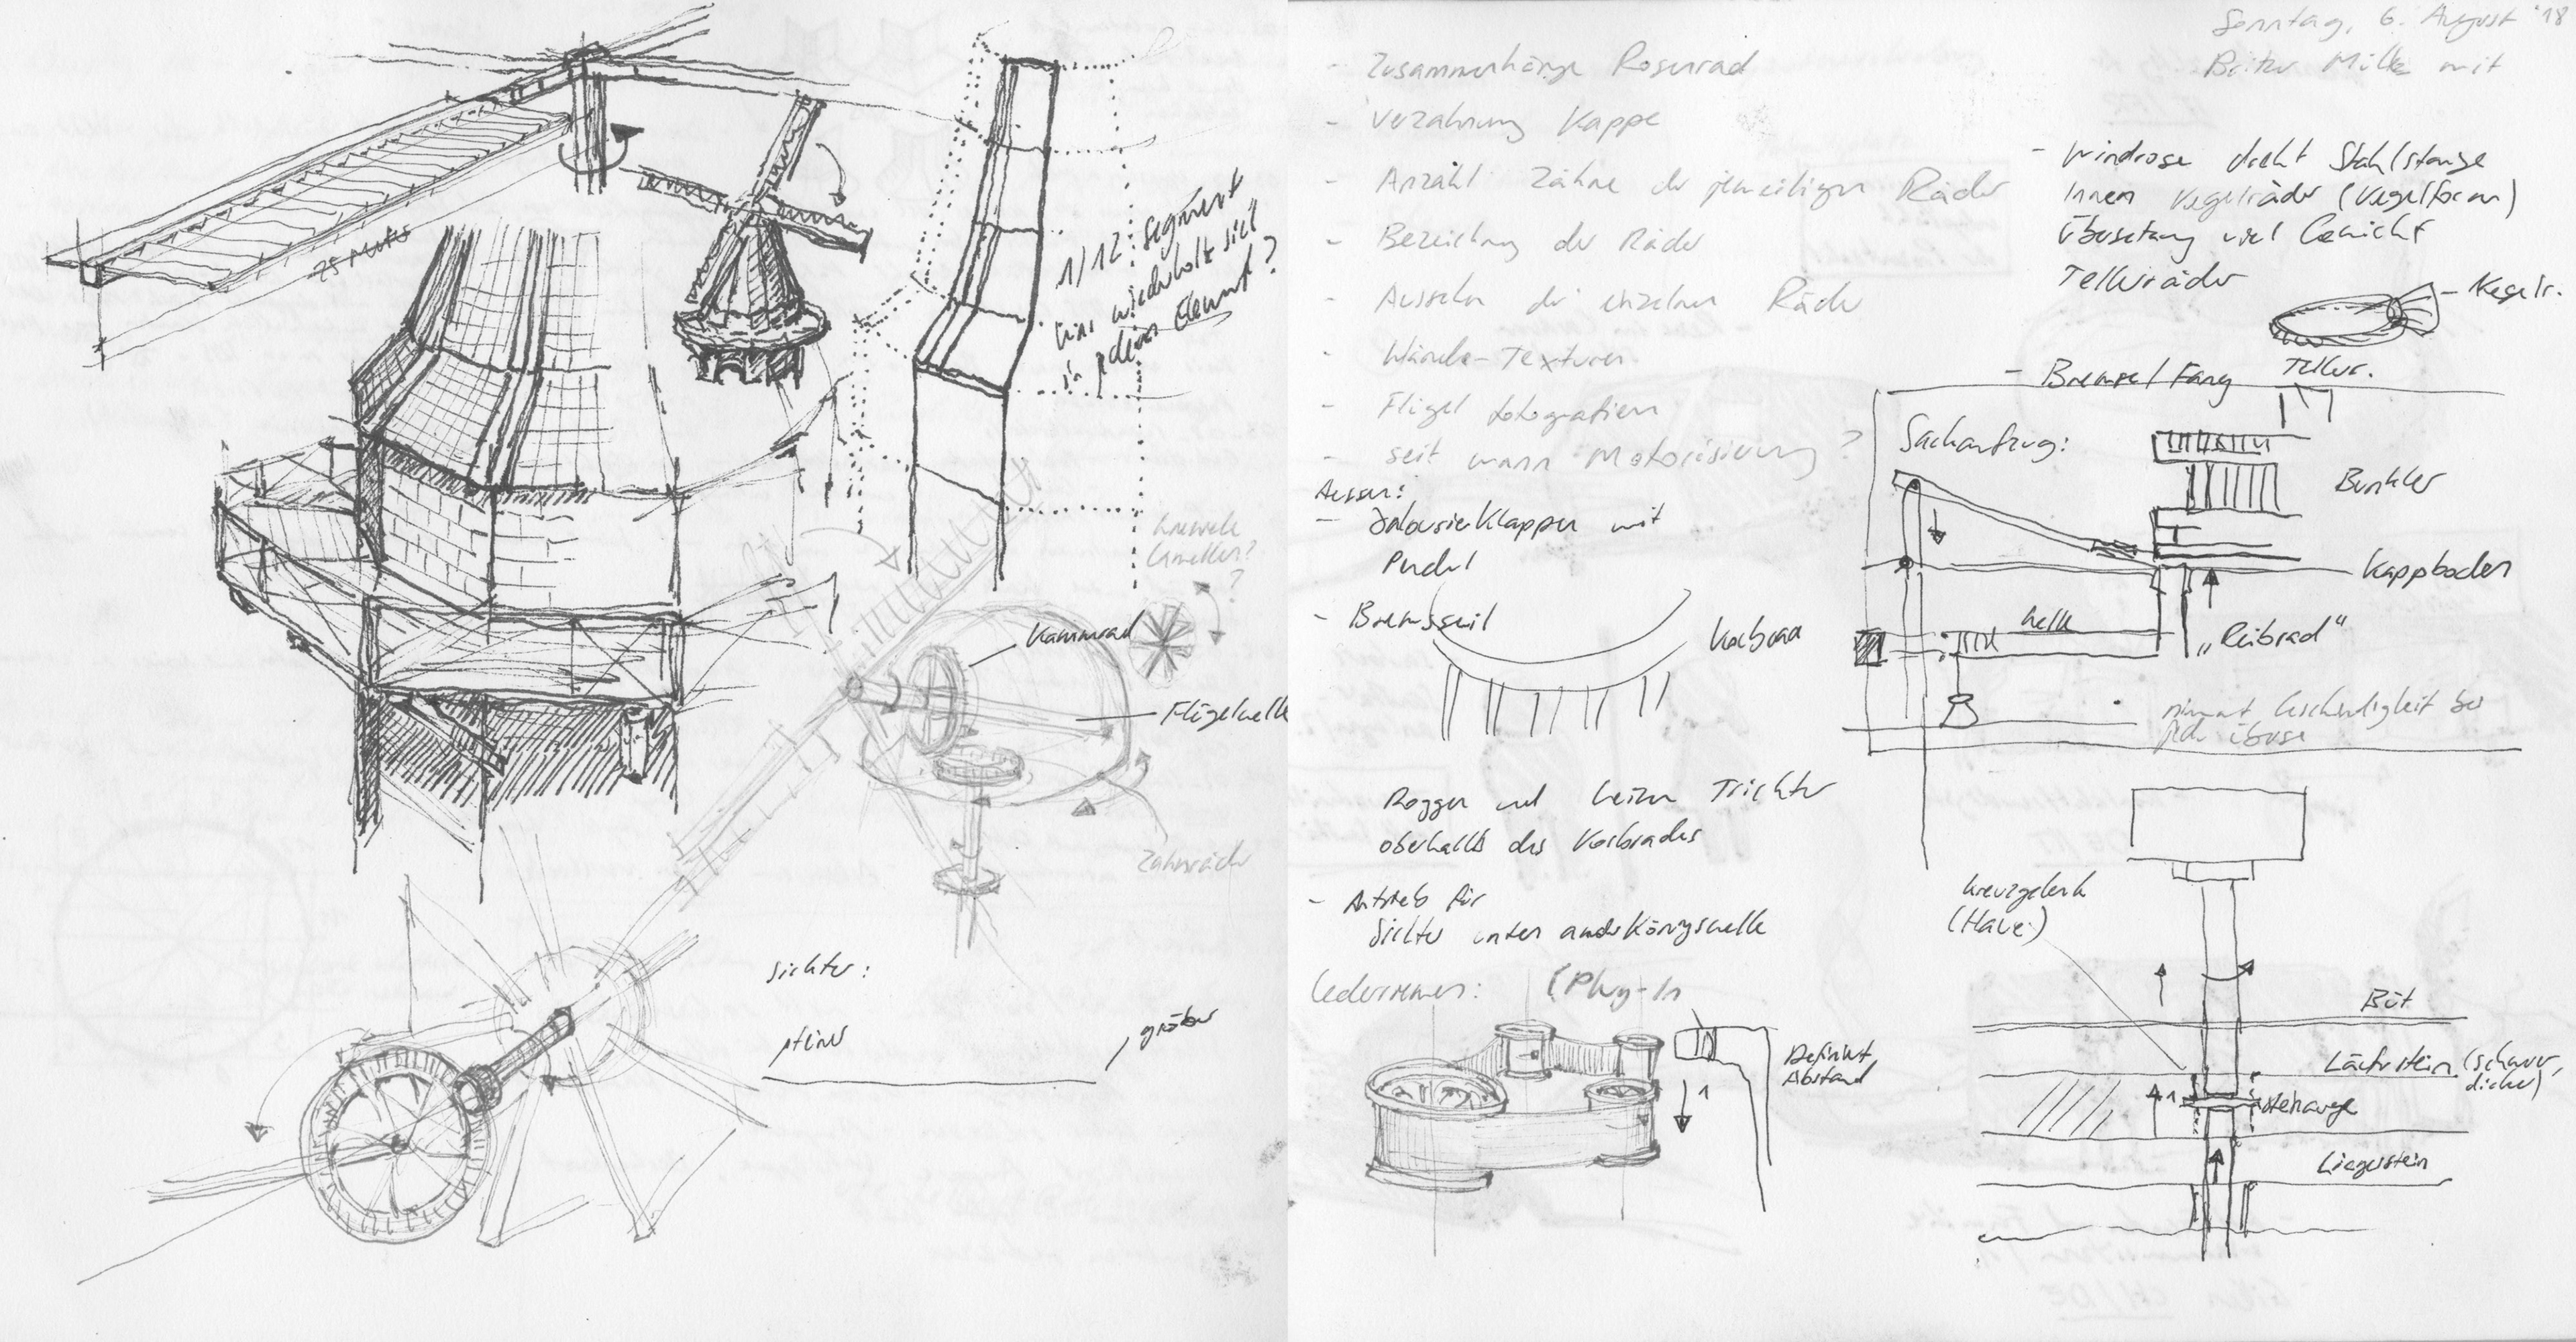 25 Meter
1/12 Segment
Was wiederholt sich
in jedem Element?
Kammrad
Flügelwelle
Zahnräder
Sichter:
gröber
Sonntag, 6. August '18
Britzer Mühle mit
- Zusammenhänge Rosenrad
- Verzahnung Kappe
- Anzahl Zähne der jeweiligen Räder
- Bezeichnung der Räder
- Aussehen der einzelnen Räder
- Wände-Texturen
- Flügel fotografieren
- seit wann Motorisierung?
Aussen:
- Jalousieklappen mit
Pendel
- Bremsseil
Korbrad
Roggen und Weizen Trichter
oberhalb des Korbrades
- Antrieb für
Sichter unten an der Königswelle
Lederriemen:
(Plug-In
Definiert
Abstand
1
- Windrose dreht Stahlstange
Innen Kegelräder (Kegelform)
Übersetzung viel Gewicht
Tellerräder
- Kegelr.
Teller.
- Bremse / Fang
Sackaufzug:
Bunkler
Kappboden
Welle
"Reibrad"
nimmt Geschwindigkeit der
Kreuzgelenk
(Haue)
Büt
Läuferstein (schwer,
dicker)
1
Steinauge
Liegerstein